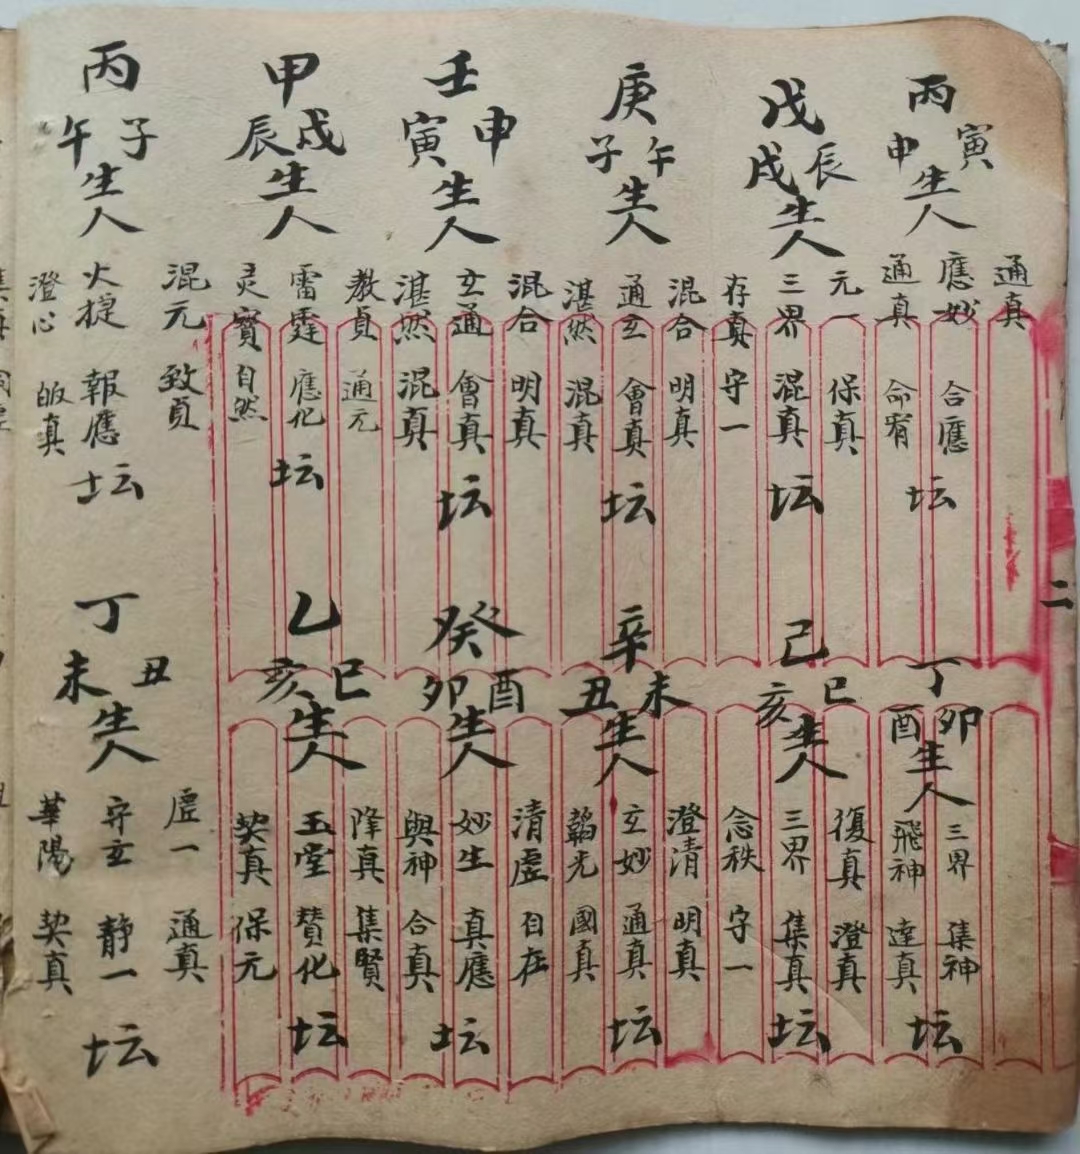 二
丙
寅申
生人
通真
應妙 合應
通真 命宥
坛
丁
卯酉
生人
三界 集神
飛神 達真
坛
戊
辰戌
生人
元一 保真
三界 混真
存真 守一
坛
己
巳亥
生人
復真 澄真
三界 集真
念秩 守一
坛
庚
午子
生人
混合 明真
通玄 會真
湛然 混真
坛
辛
未丑
生人
澄清 明真
玄妙 通真
韜光 國真
坛
壬
申寅
生人
混合 明真
玄通 會真
湛然 混真
坛
癸
酉卯
生人
清虛 自在
妙生 真應
與神 合真
坛
甲
戌辰
生人
教真 通元
雷霆 應化
灵寶 自然
坛
乙
巳亥
生人
降真 集賢
玉堂 賛化
契真 保元
坛
丙
子午
生人
混元 致真
火捷 報應
澄心 皈真
坛
丁
丑未
生人
虛一 通真
守玄 静一
華陽 契真
坛